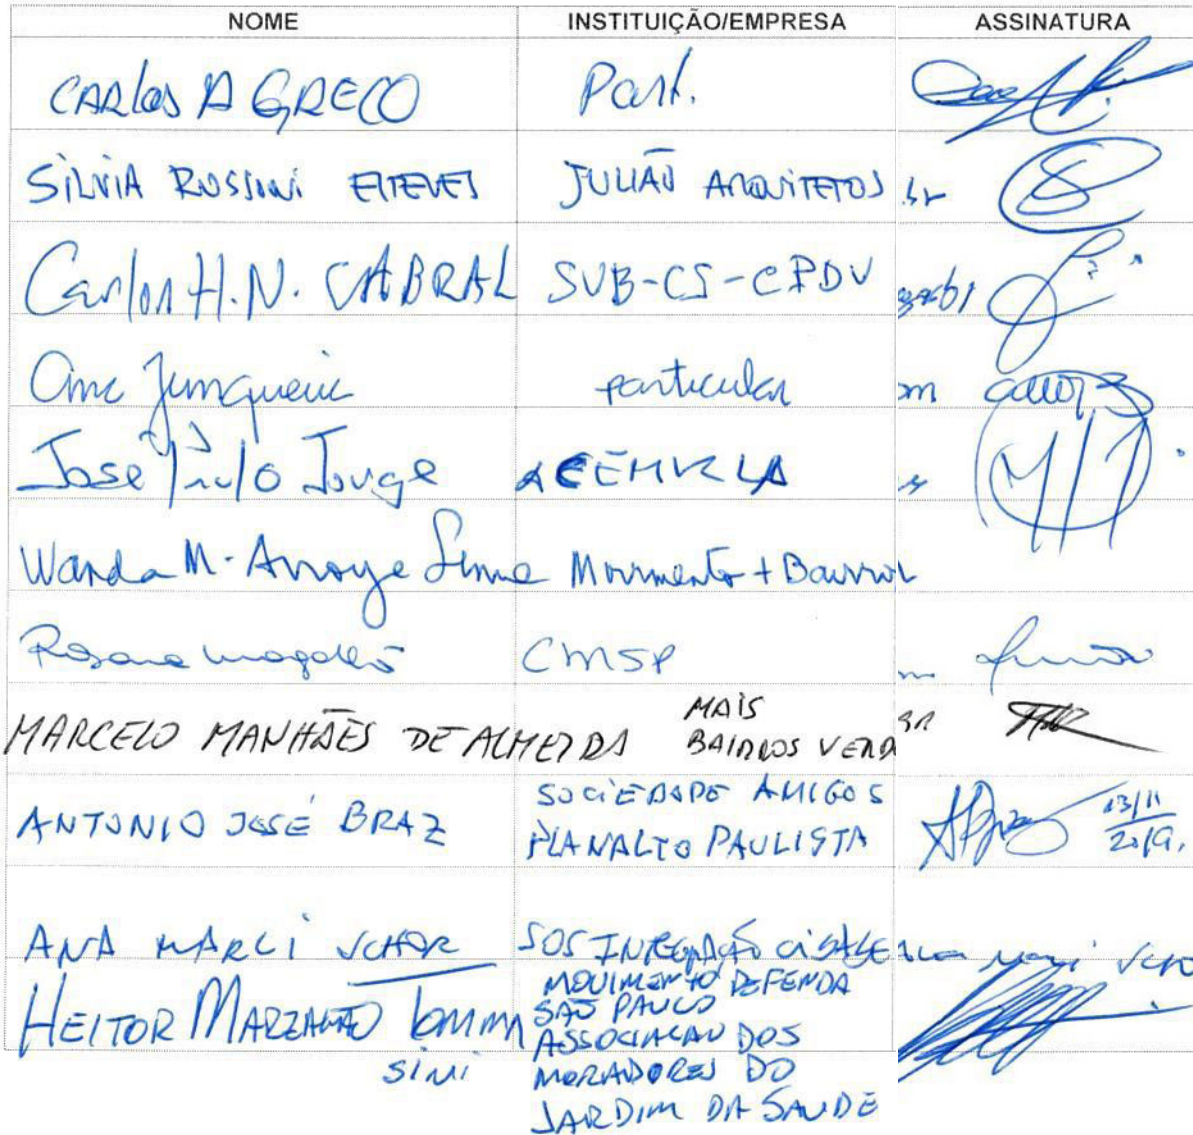 NOME INSTITUIÇÃO/EMPRESA ASSINATURA
CARLOS A GRECO Part.
SILVIA RUSSINI ESTEVES JULIÃO ARQUITETOS .br
Carlos H. N. CABRAL SUB-CS-CPDU
Ana Junqueira particular om
José Paulo Jorge
Wanda M. Arroyo Movimento + Bairros
Rosana Magalhães CMSP
MARCELO MANHÃES DE ALMEIDA MAIS
BAIRROS VERD
ANTONIO JOSÉ BRAZ SOCIEDADE AMIGOS
PLANALTO PAULISTA
13/11
2019.
ANA MARLI SCHOR SOS
HEITOR MARZAGÃO TOMMA
SINI
MOVIMENTO DEFENDA
SÃO PAULO
ASSOCIACAO DOS
MORADORES DO
JARDIM DA SAUDE